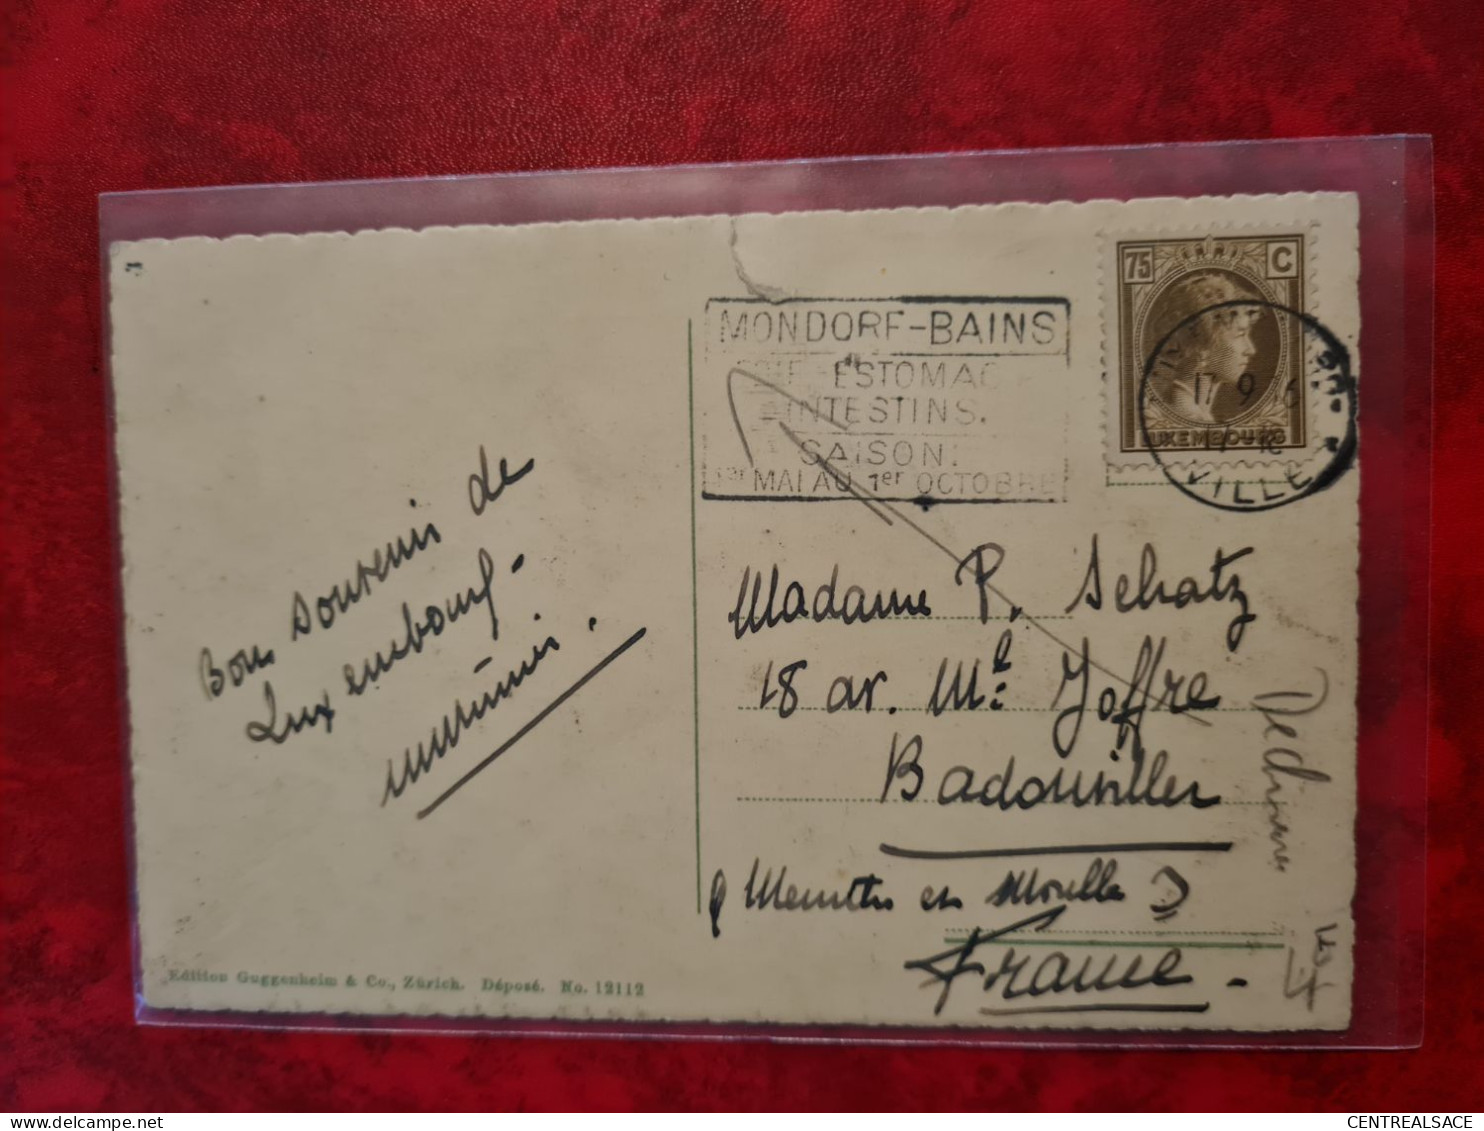 MONDORF-BAINS
ESTOMAC
INTESTINS.
SAISON:
1er MAI AU 1er OCTOBRE
75 C
LUXEMBOURG
17 9
VILLE
Bon souvenir de
Luxembourg -
Madame P. Schatz
18 av. Mal Joffre
Badonviller
(Meurthe et Moselle)
France -
Edition Guggenheim & Co., Zürich. Déposé. No. 12112
CENTREALSACE